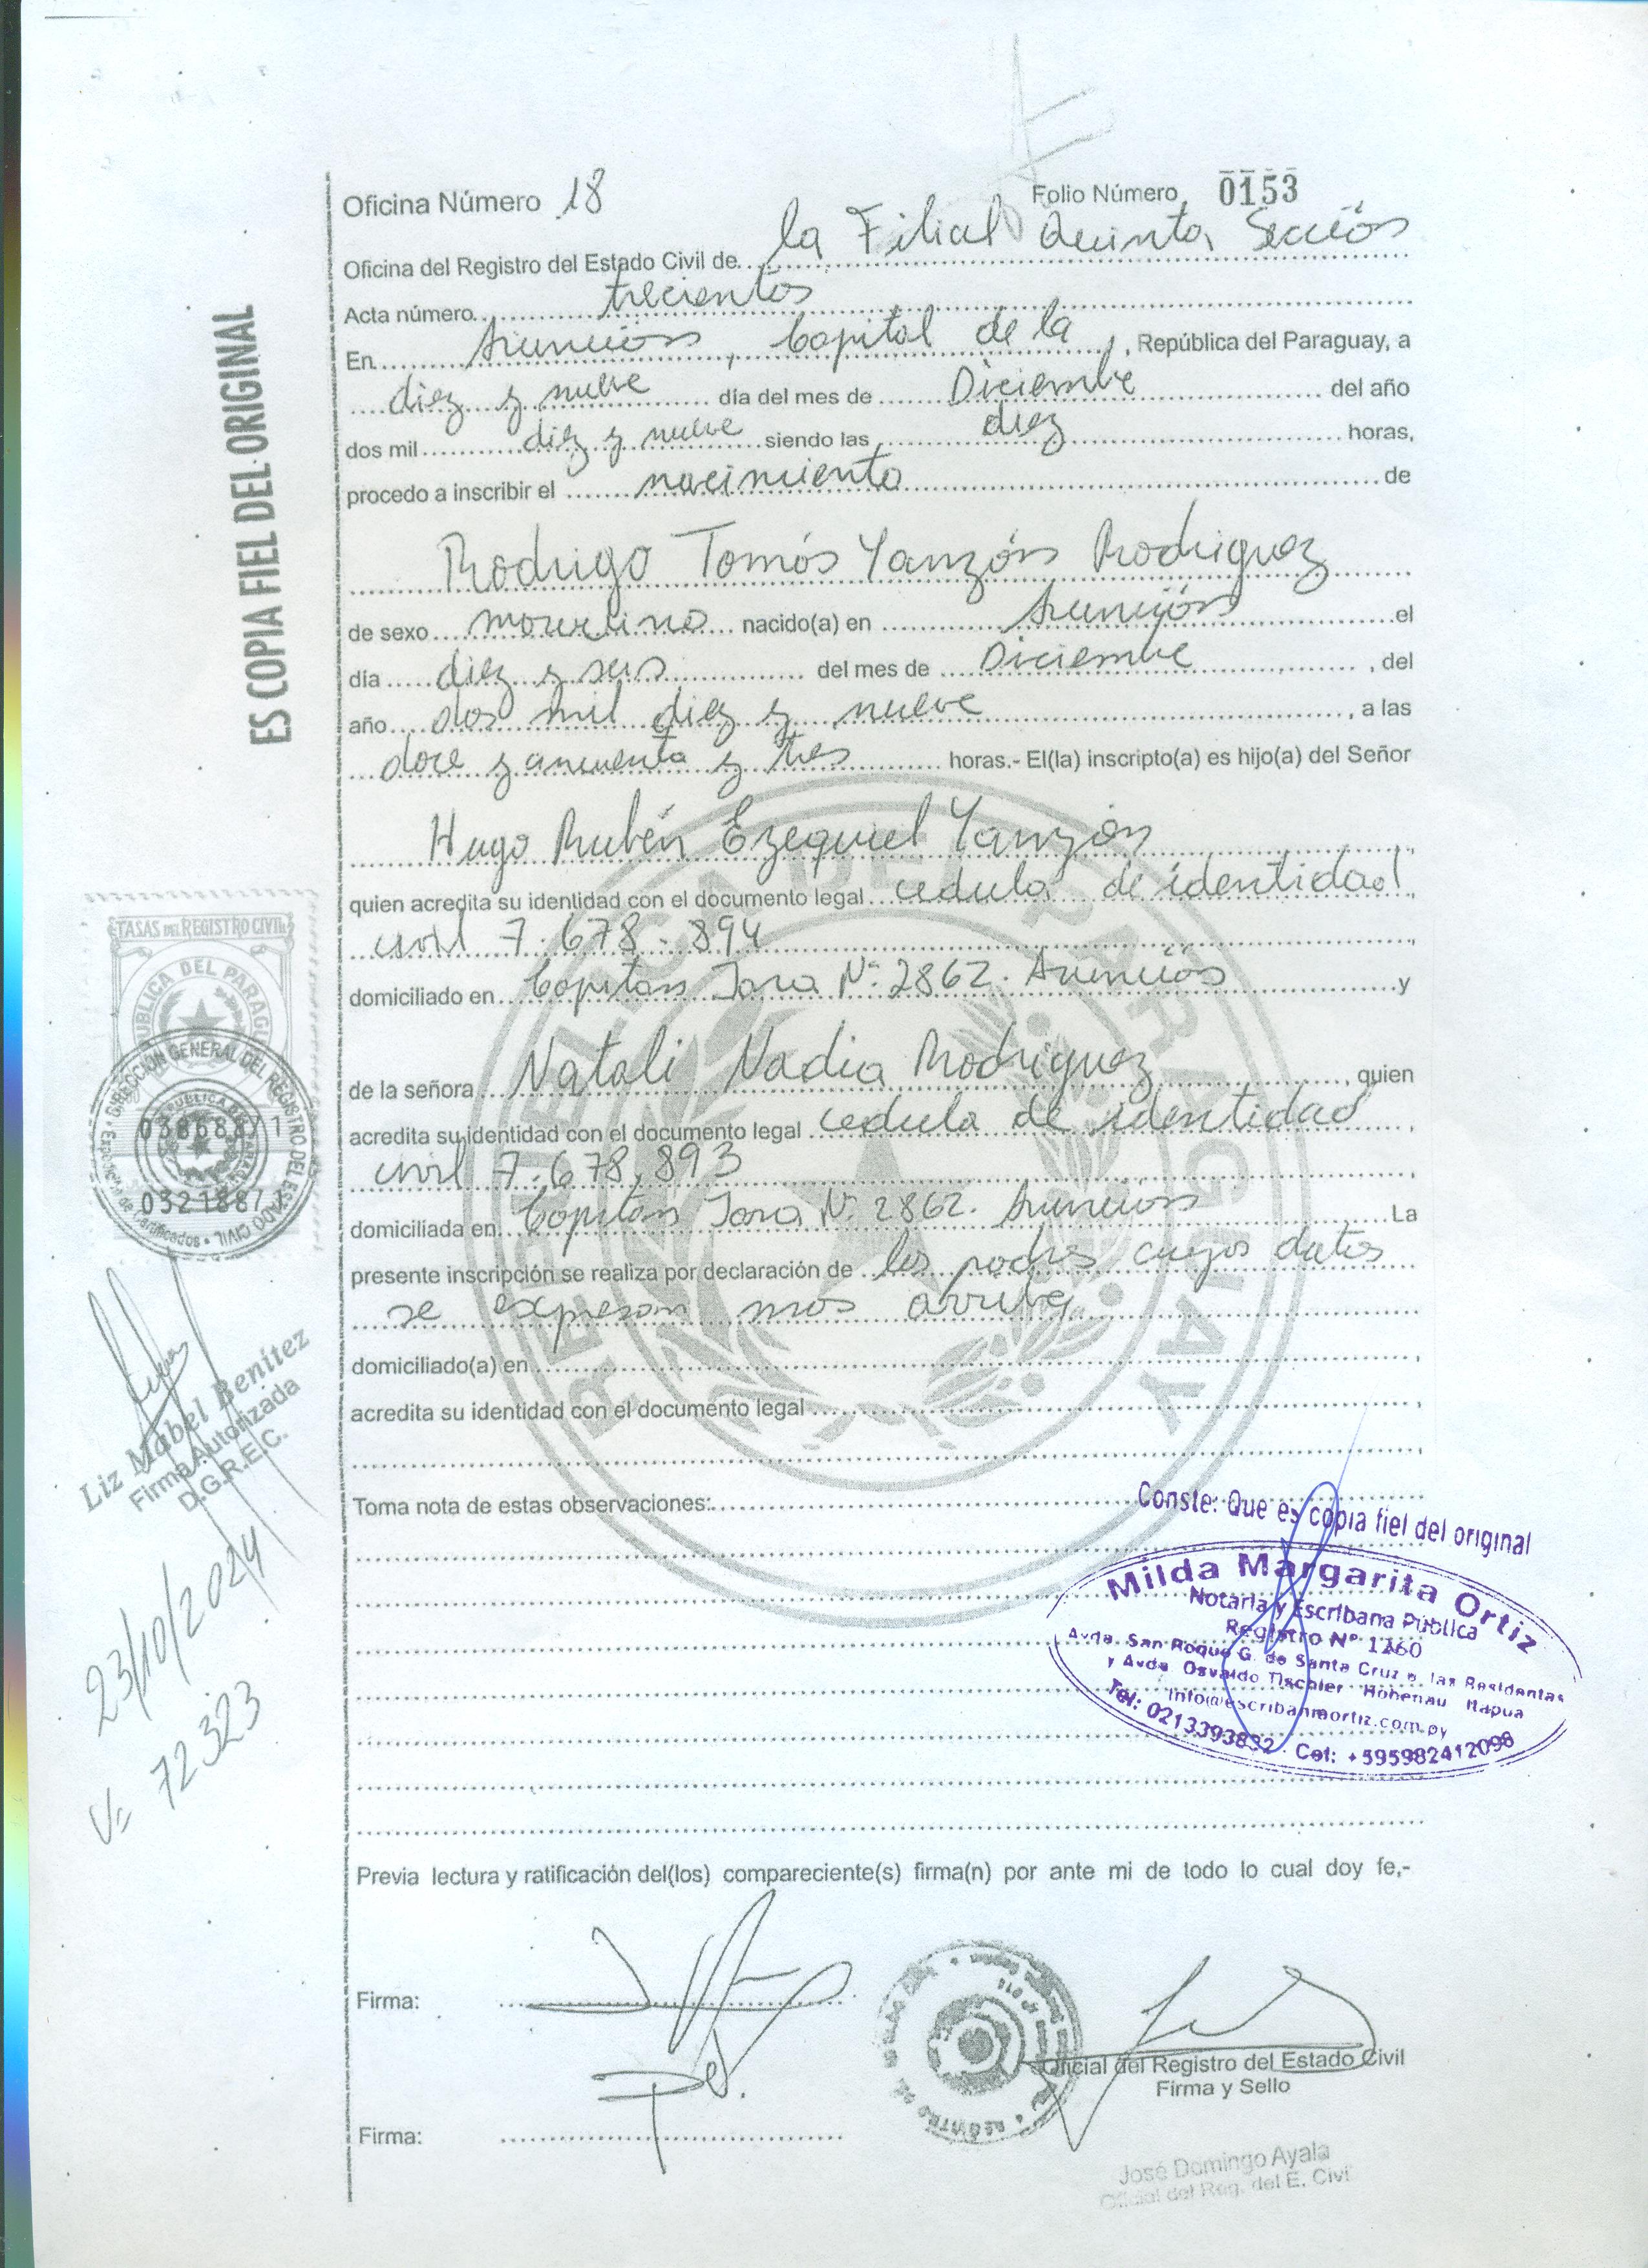 Oficina Número 18
Folio Número 0153
Oficina del Registro del Estado Civil de la Filial Quinta Sección
Acta número trecientos
En Asunción, Capital de la, República del Paraguay, a
diez y nueve día del mes de Diciembre del año
dos mil diez y nueve siendo las diez horas,
procedo a inscribir el nacimiento de
Rodrigo Tomás Yanzón Rodriguez
de sexo masculino nacido(a) en Asunción el
día diez y seis del mes de Diciembre, del
año dos mil diez y nueve, a las
doce y cincuenta y tres horas.- El(la) inscripto(a) es hijo(a) del Señor
Hugo Rubén Ezequiel Yanzón,
quien acredita su identidad con el documento legal cedula de identidad,
civil 7.678.894,
domiciliado en Capitán Jara Nº 2862. Asunción y
de la señora Natali Nadia Rodriguez, quien
acredita su identidad con el documento legal cedula de identidad,
civil 7.678.893,
domiciliada en Capitán Jara Nº 2862. Asunción. La
presente inscripción se realiza por declaración de los padres cuyos datos
se expresan mas arriba,
domiciliado(a) en,
acredita su identidad con el documento legal,
Toma nota de estas observaciones:
Previa lectura y ratificación del(los) compareciente(s) firma(n) por ante mi de todo lo cual doy fe,-
Firma:
Oficial del Registro del Estado Civil
Firma y Sello
Firma:
José Domingo Ayala
Oficial del Reg. del E. Civil
ES COPIA FIEL DEL ORIGINAL
TASAS DEL REGISTRO CIVIL
REPUBLICA DEL PARAGUAY
DIRECCIÓN GENERAL DEL REGISTRO DEL ESTADO CIVIL
Expedición de Certificados
REPUBLICA DEL PARAGUAY
0386887/1
0321887/1
Liz Mabel Benítez
Firma Autorizada
D.G.R.E.C.
23/10/2024
V= 72323
REPUBLICA DEL PARAGUAY
Conste: Que es copia fiel del original
Milda Margarita Ortiz
Notaria y Escribana Pública
Registro Nº 1260
Avda. San Roque G. de Santa Cruz e. las Residentas
y Avda. Osvaldo Tischler Hohenau Itapua
Tel: 0213393832 Cel: +595982412098